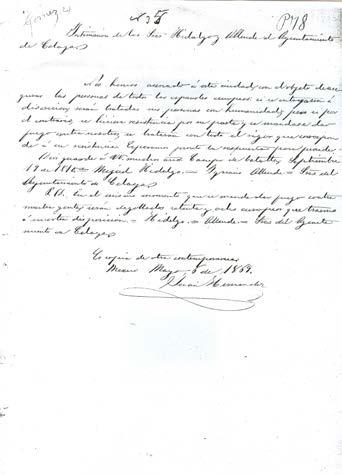 Nº 35 P78
Intimacion de los Sres Hidalgo y Allende al Ayuntamiento
de Celaya
Nos hemos acercado á esta ciudad, con el objeto de ase-
gurar las personas de todos los españoles europeos: si se entregasen á
discrecion, serán tratadas sus personas con humanidad; pero si por
el contrario, se hiciere resistencia por su parte y se mandase dar
fuego contra nosotros, se tratarán con todo el rigor que correspon-
de á su resistencia. Esperamos pronto la respuesta para proceder.
Dios guarde á VV. muchos años Campo de batalla, Septiembre
19 de 1810 = Miguel Hidalgo. = Ignacio Allende = Sres del
Ayuntamiento de Celaya
P.D. En el mismo momento que se mande dar fuego contra
nuestra gente, serán degollados setenta y ocho europeos que traemos
á nuestra disposicion = Hidalgo. = Allende = Sres del Ayunta-
miento de Celaya
Es copia de otra contemporanea
Mexico Mayo 5 de 1869.
Juan Hernandez